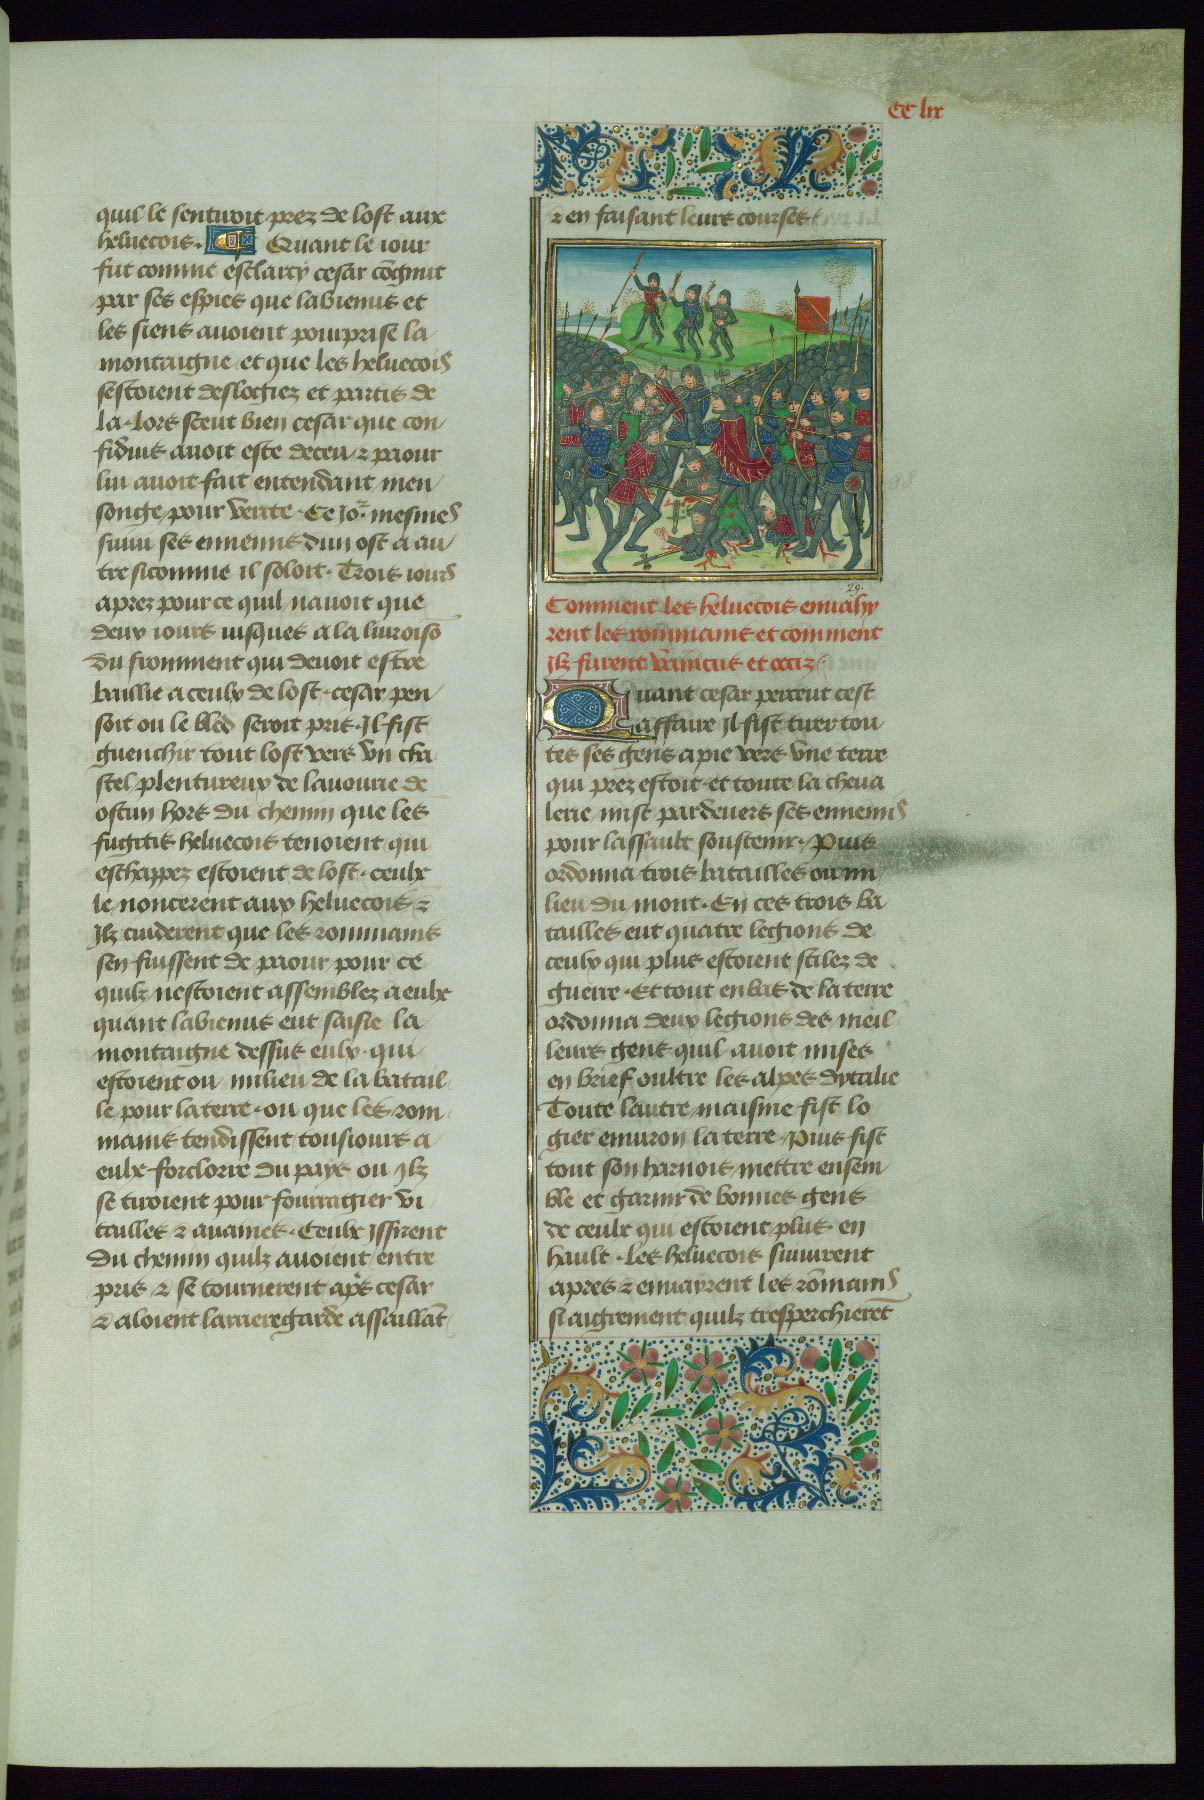 CC lix
quil le sentuoit prez de lost aux
heluecois. Quant le iour
fut comme esclarcy cesar cognut
par ses espies que labienus et
les siens auoient pourprise la
montaigne et que les heluecois
sestoient deslogiez et partis de
la. Lors sceut bien cesar que con
sidius auoit este deceu & paour
lui auoit fait entendant men
songe pour verite. Ce jor mesmes
suiui ses ennemis dun ost a au
tre si comme il soloit. Trois iours
aprez pour ce quil nauoit que
deux iours iusques a la liuroiso
du fromment qui deuoit estre
baillie a ceulx de lost. cesar pen
soit ou le bled seroit pris. Il fist
guenchir tout lost vers vn cha
stel plentureux de lauourie de
ostun hors du chemin que les
fugitis heluecois tenoient qui
eschappez estoient de lost. ceulx
le noncerent aux heluecois &
Ilz cuiderent que les rommains
sen fuissent de paour pour ce
quilz nestoient assemblez a eulx
quant labienus eut saisie la
montaigne dessus eulx. qui
estoient ou milieu de la batail
le pour la terre. ou que les rom
mains tendissent tousiours a
eulx forclorre du pays ou Ilz
se tiroient pour fourragier vi
tailles & auaines. Ceulx Issirent
du chemin quilz auoient entre
pris & se tournerent aps cesar
& aloient larrieregarde assaillat
& en faisant leurs courses
29.
Comment les heluecois enuahy
rent les rommains et comment
Ilz furent vaincus et occiz.
Quant cesar perceut cest
affaire Il fist tirer tou
tes ses gens a pie vers vne terre
qui prez estoit et toute la cheua
lerie mist pardeuers ses ennemis
pour lassault soustenir. Puis
ordonna trois batailles ou mi
lieu du mont. En ces trois ba
tailles eut quatre legions de
ceulx qui plus estoient stilez de
guerre. Et tout en bas de la terre
ordonna deux legions des meil
leurs gens quil auoit mises
en brief oultre les alpes dytalie
Toute lautre maisme fist lo
gier enuiron la terre. Puis fist
tout son harnois mettre ensem
ble et garnir de bonnes gens
de ceulx qui estoient plus en
hault. Les heluecois suiuirent
apres & enuayrent les romains
si aigrement quilz tresperchieret